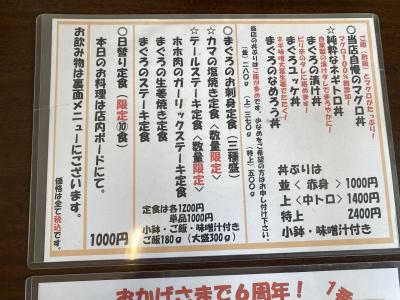 ご飯「酢飯」とマグロがたっぷり!
マグロ100%無添加!
◎当店自慢のマグロ丼
☆純粋なネギトロ丼
自家製の漬けタレでまろやかに!
まぐろの漬け丼
ピリ辛のタレに絡めます!
まぐろユッケ丼
ネギ味噌大葉生姜でたたく!
まぐろのなめろう丼
丼ぶりは
並〈赤身〉1000円
上〈中トロ〉1400円
特上 2400円
小鉢・味噌汁付き
当店の丼ぶりはご飯が多めです。少なめをご希望の方はお申し付け下さい。
(並)280g (上)270g (特上)500g
◎まぐろのお刺身定食(三種盛)
☆カマの塩焼き定食〈数量限定〉
☆テールステーキ定食〈数量限定〉
ホホ肉のガーリックステーキ定食
まぐろの生姜焼き定食
まぐろのステーキ定食
定食は各1200円
単品1000円
小鉢・ご飯・味噌汁付き
ご飯180g(大盛300g)
◎日替り定食(限定⑩食)
本日のお料理は店内ボードにて。
1000円
お飲み物は裏面メニューにございます。
価格は全て税込です。
おかげさまで6周年!